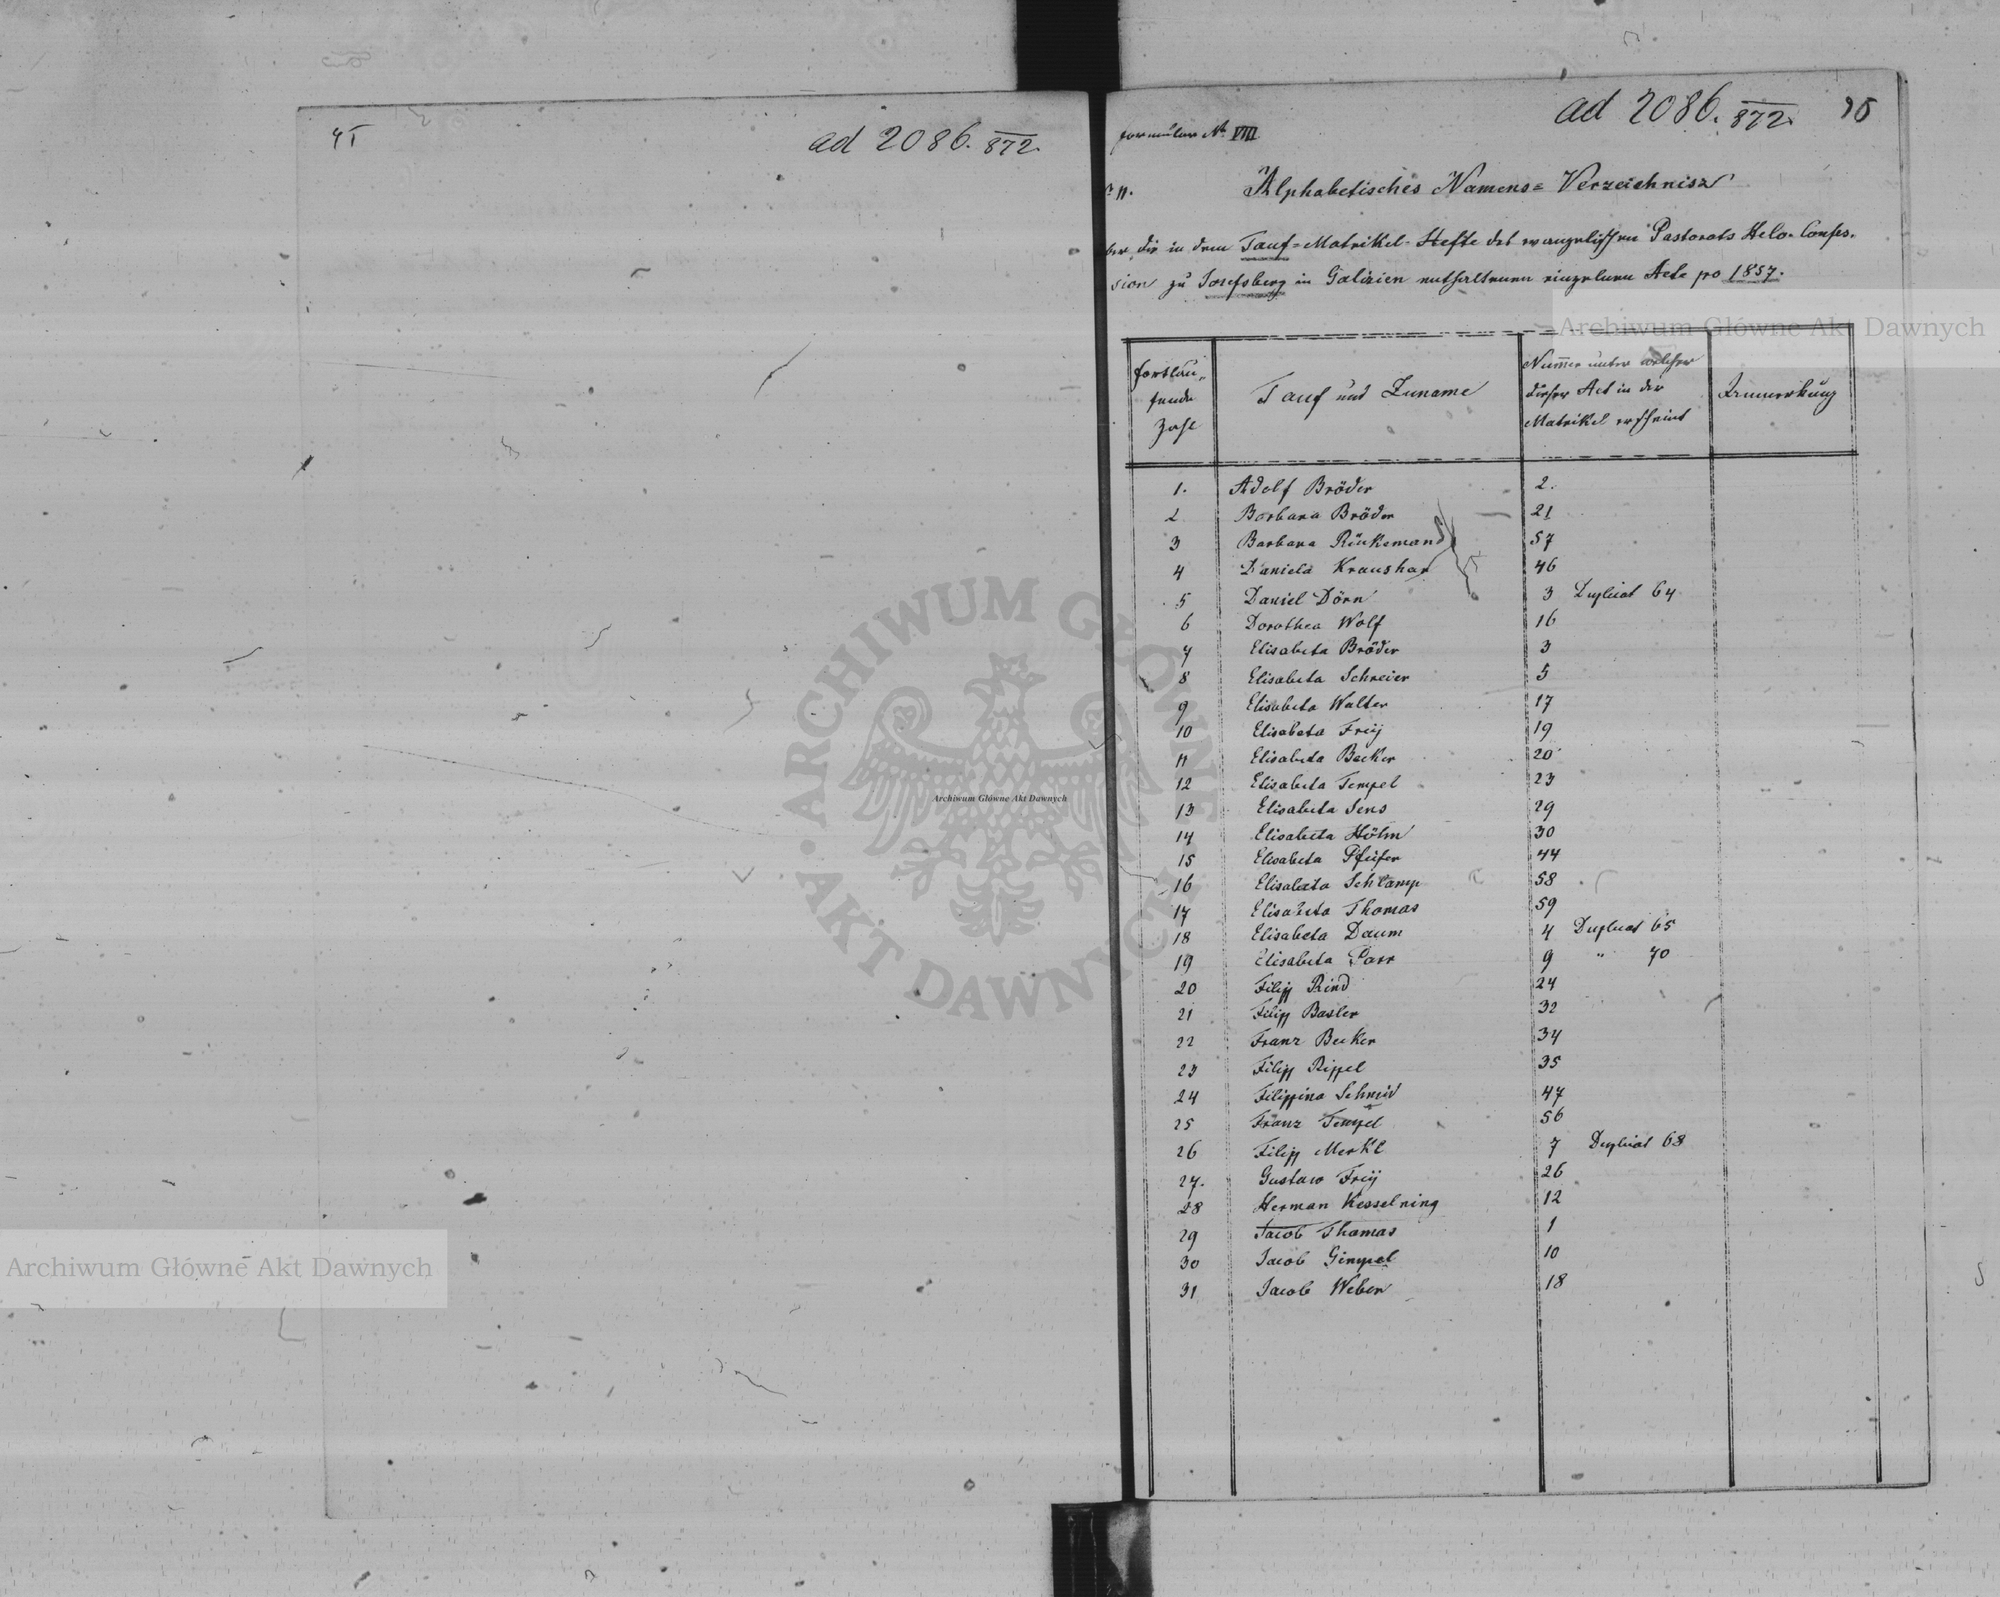 ad 2086. 872.
Formulare № VIII
ad 2086. 872.
Alphabetisches Namens= Verzeichnisz
ber die in dem Tauf=Matrikel-Hefte des evangelischen Pastorats Helv. Confes.
sion zu Josefsberg in Galizien enthaltenen einzelnen Acte pro 1857.
Fortlau-
fende
Zahl
Tauf und Zuname
Numer unter welcher
dieser Act in der
Matrikel erscheint
Anmerkung
1. Adolf Bröder 2.
2 Barbara Bröder 21
3 Barbara Rinkemand 57
4 Daniela Kraushar 46
5 Daniel Dörn 3 Duplicat 64
6 Dorothea Wolf 16
7 Elisabeta Bröder 3
8 Elisabeta Schreier 5
9 Elisabeta Walter 17
10 Elisabeta Frey 19
11 Elisabeta Becker 20
12 Elisabeta Tempel 23
13 Elisabeta Jens 29
14 Elisabeta Hölm 30
15 Elisabeta Pfeifer 44
16 Elisabeta Schlamp 58
17 Elisabeta Thomas 59
18 Elisabeta Daum 4 Duplicat 65
19 Elisabeta Parr 9 " 70
20 Filipp Rind 24
21 Filipp Basler 32
22 Franz Becker 34
23 Filipp Rippel 35
24 Filippina Schmid 47
25 Franz Tempel 56
26 Filipp Merkl 7 Duplicat 68
27. Gustaw Frey 26
28 Herman Kesselring 12
29 Jacob Thomas 1
30 Jacob Gimpel 10
31 Jacob Weber 18
Archiwum Główne Akt Dawnych
ARCHIWUM GŁÓWNE
AKT DAWNYCH
Archiwum Główne Akt Dawnych
Archiwum Główne Akt Dawnych